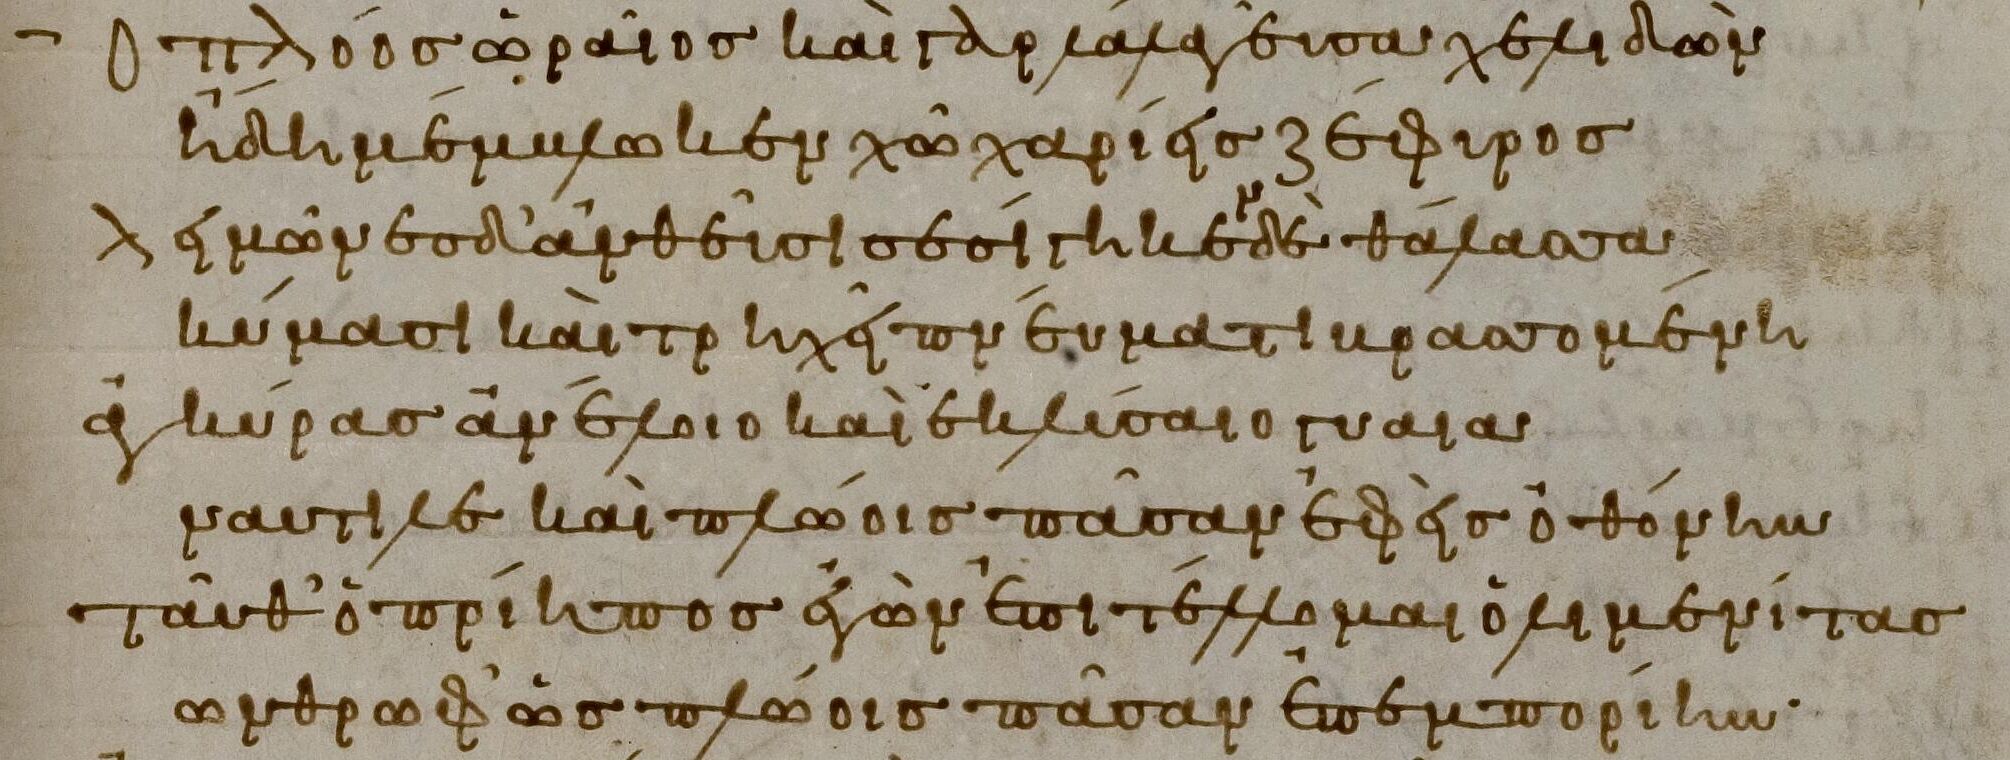 Ὁ πλόος ὡραῖος καὶ γὰρ λαλαγεῦσα χελιδὼν
ἤδη μέμβλωκεν χὠ χαρίεις ζέφυρος
λειμῶνες δ' ἀνθεῦσι σεσίγηκεν δὲ θάλασσα
κύμασι καὶ τρηχεῖ πνεύματι βρασσομένη
ἀγκύρας ἀνέλοιο καὶ ἐκλύσαιο γυαῖα
ναυτίλε καὶ πλώοις πᾶσαν ἐφεὶς ὀθόνην
ταῦθ' ὁ πρίηπος ἐγὼν ἐπιτέλλομαι ὁ λιμενίτας
ὤνθρωφ' ὡς πλώοις πᾶσαν ἐπ' ἐμπορίην·